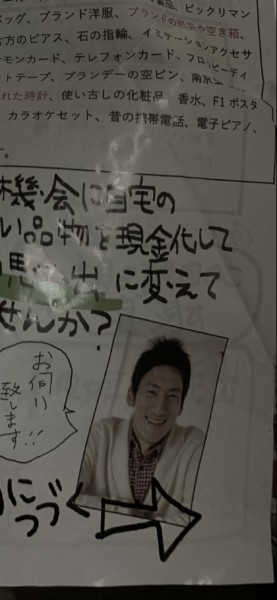 品、ビックリマン
バッグ、ブランド洋服、ブランドの紙袋や空き箱、
片方のピアス、石の指輪、イミテーションアクセサ
モンカード、テレフォンカード、フロッピーディ
ットテープ、ブランデーの空ビン、南京
れた時計、使い古しの化粧品、香水、F1ポスタ
カラオケセット、昔の携帯電話、電子ピアノ、
す。
機会に自宅の
い品物を現金化して
思い出に変えて
せんか?
お伺い
致します!!
につづく